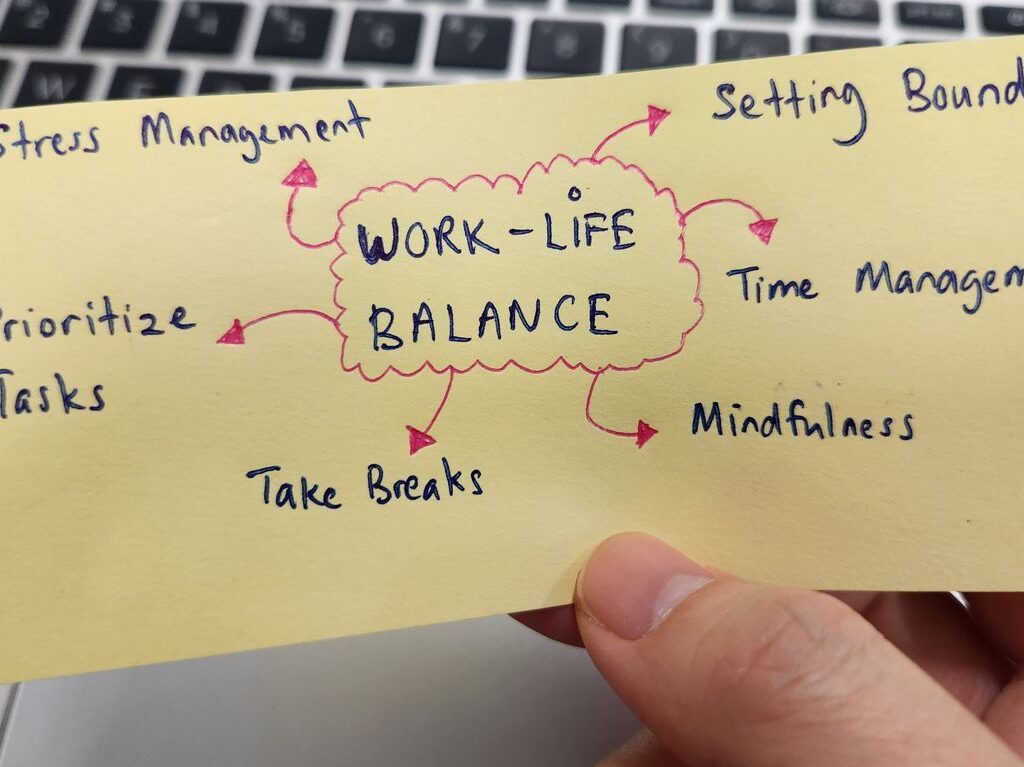 Stress Management
Setting Bound
WORK-LiFE
BALANCE
Time Managem
Prioritize
Tasks
Mindfulness
Take Breaks
2
3
4
5
6
7
8
9
W